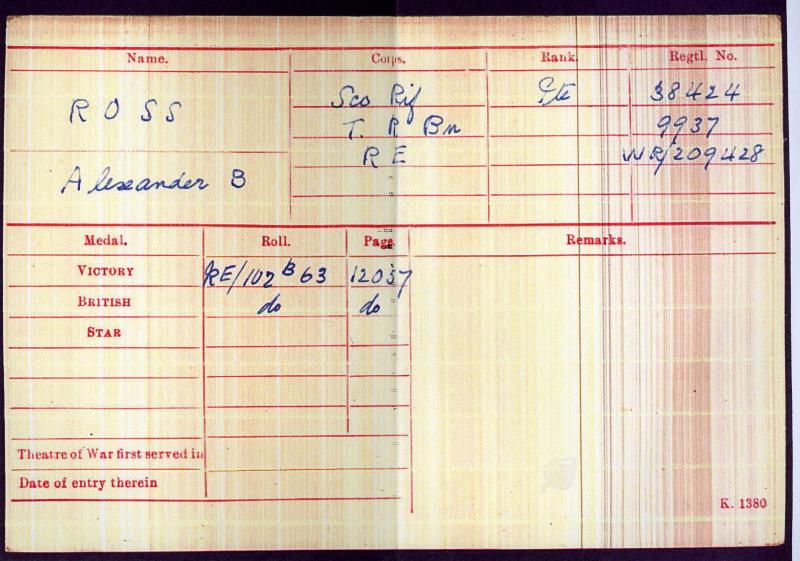 Name. Corps. Rank. Regtl. No.
ROSS Sco Rif Pte 38424
T. R Bn 9937
RE WR/209428
Alexander B
Medal. Roll. Page Remarks.
VICTORY RE/102 B 63 12037
BRITISH do do
STAR
Theatre of War first served in
Date of entry therein
K. 1380